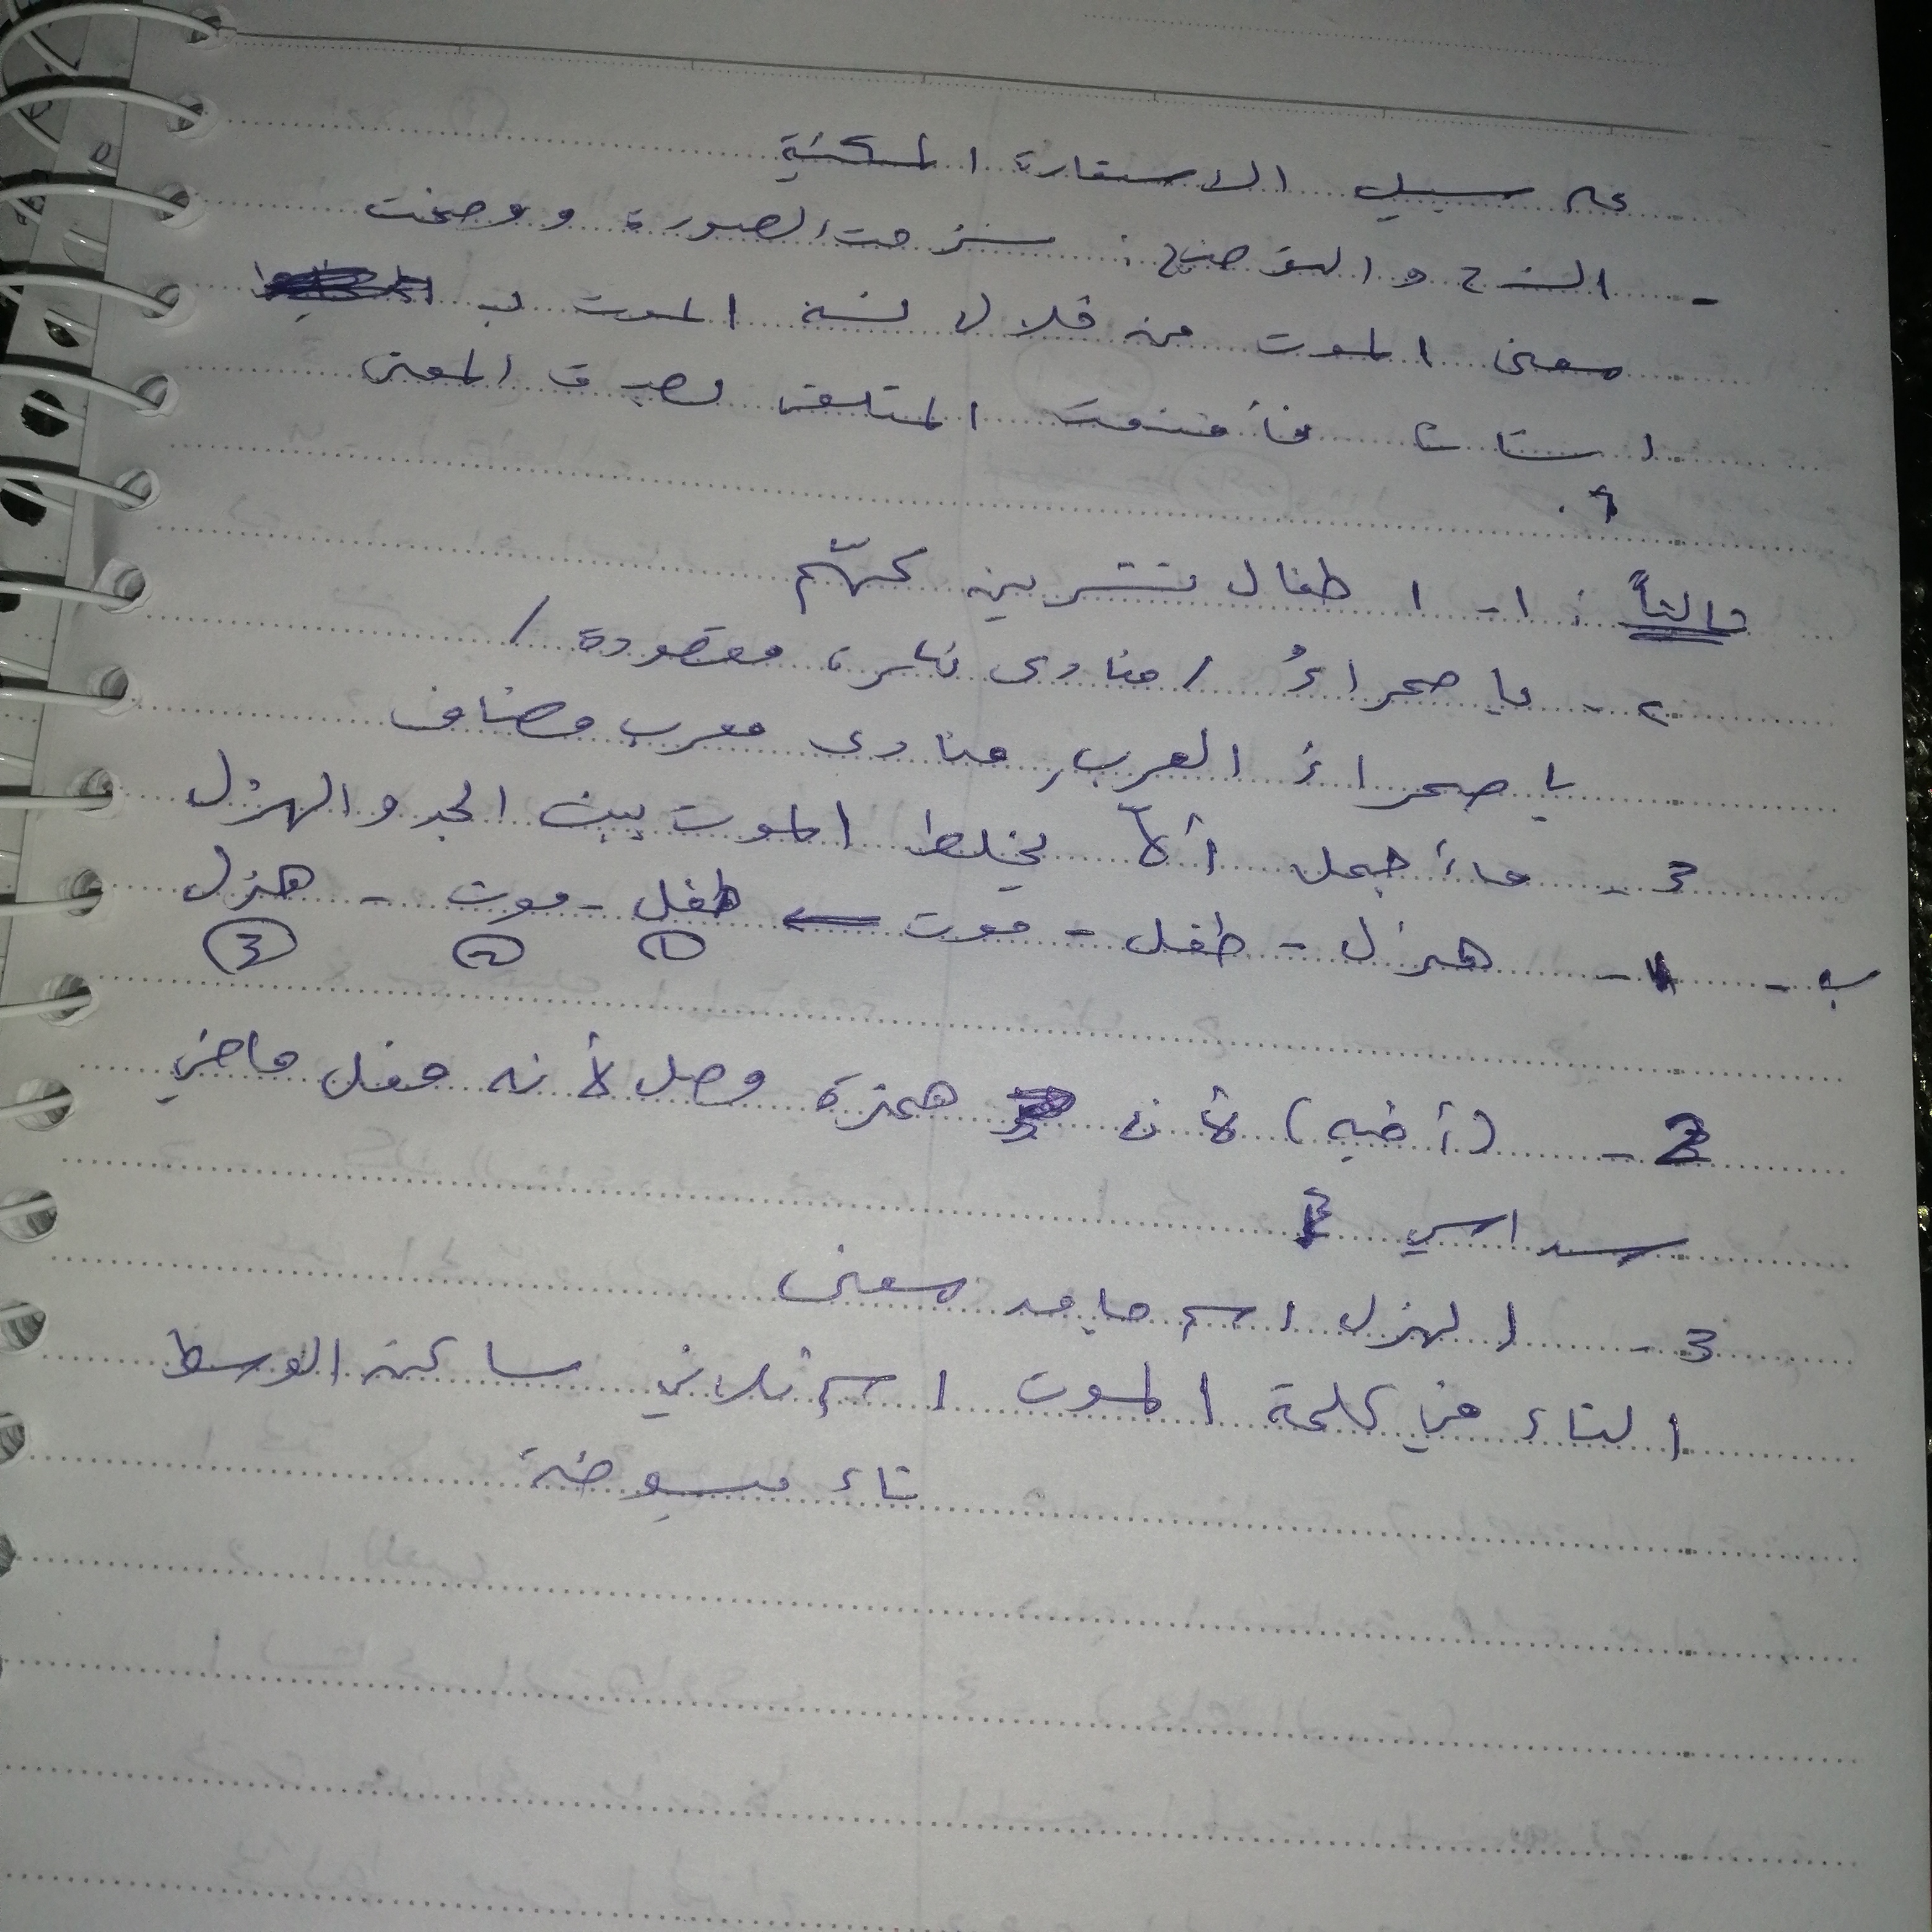 على سبيل الاستعارة المكنية
- الشرح والتوضيح: شرحت الصورة ووضحت
معنى الموت من خلال تشبيه الموت بـ
إنسان فأقنعت المتلقي بصدق المعنى
ثالثاً: 1- أطفال تشرين كلهم
2- يا صحراءُ / منادى نكرة مقصودة /
يا صحراءَ العرب, منادى معرب مضاف
3- ما أجمل ألّا يخلط الموت بين الجد والهزل
ب - 1- هزل - طفل - موت ← طفل - موت - هزل
① ② ③
2- ( ) لأن همزة وصل لأنه فعل ماضي
سداسي
3- الهزل اسم جامد معنى
التاء في كلمة الموت اسم ثلاثي ساكن الوسط
تاء مبسوطة